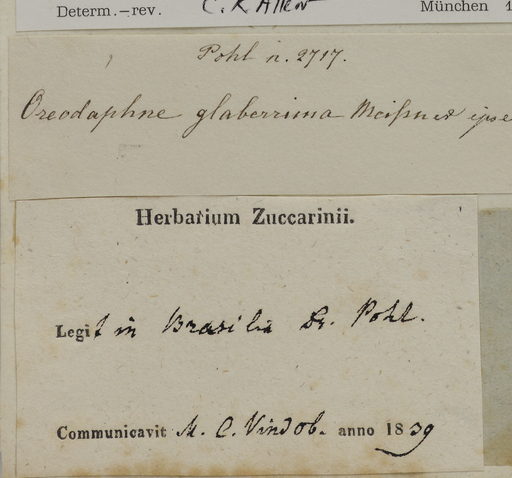 Determ.–rev. C. K. Allen München 1
Pohl n. 2717.
Oreodaphne glaberrima Meißner ipse
Herbarium Zuccarinii.
Legit in Brasilia Dr. Pohl.
Communicavit M. C. Vindob. anno 1839